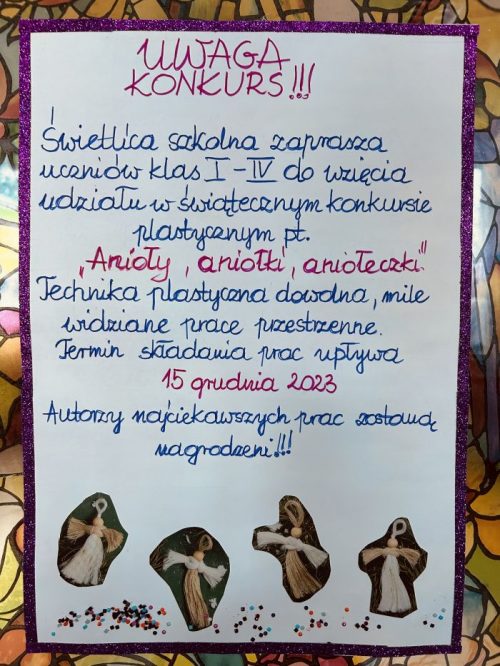 UWAGA
KONKURS!!!
Świetlica szkolna zaprasza
uczniów klas I-IV do wzięcia
udziału w świątecznym konkursie
plastycznym pt.
„Anioły, aniołki, aniołeczki"
Technika plastyczna dowolna, mile
widziane prace przestrzenne.
Termin składania prac upływa
15 grudnia 2023
Autorzy najciekawszych prac zostaną
nagrodzeni!!!